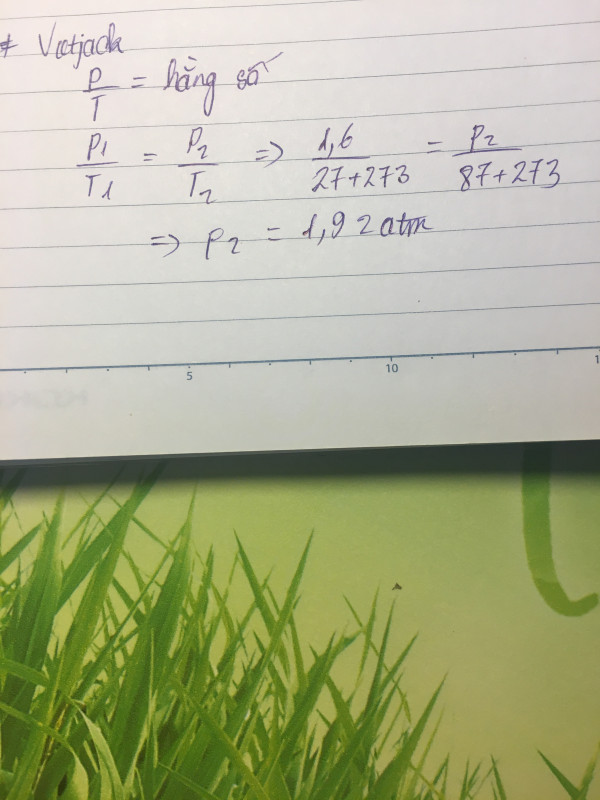 # Vietjack
P/T = hằng số
P1/T1 = P2/T2 => 1,6/27+273 = P2/87+273
=> P2 = 1,92atm
5 10 1